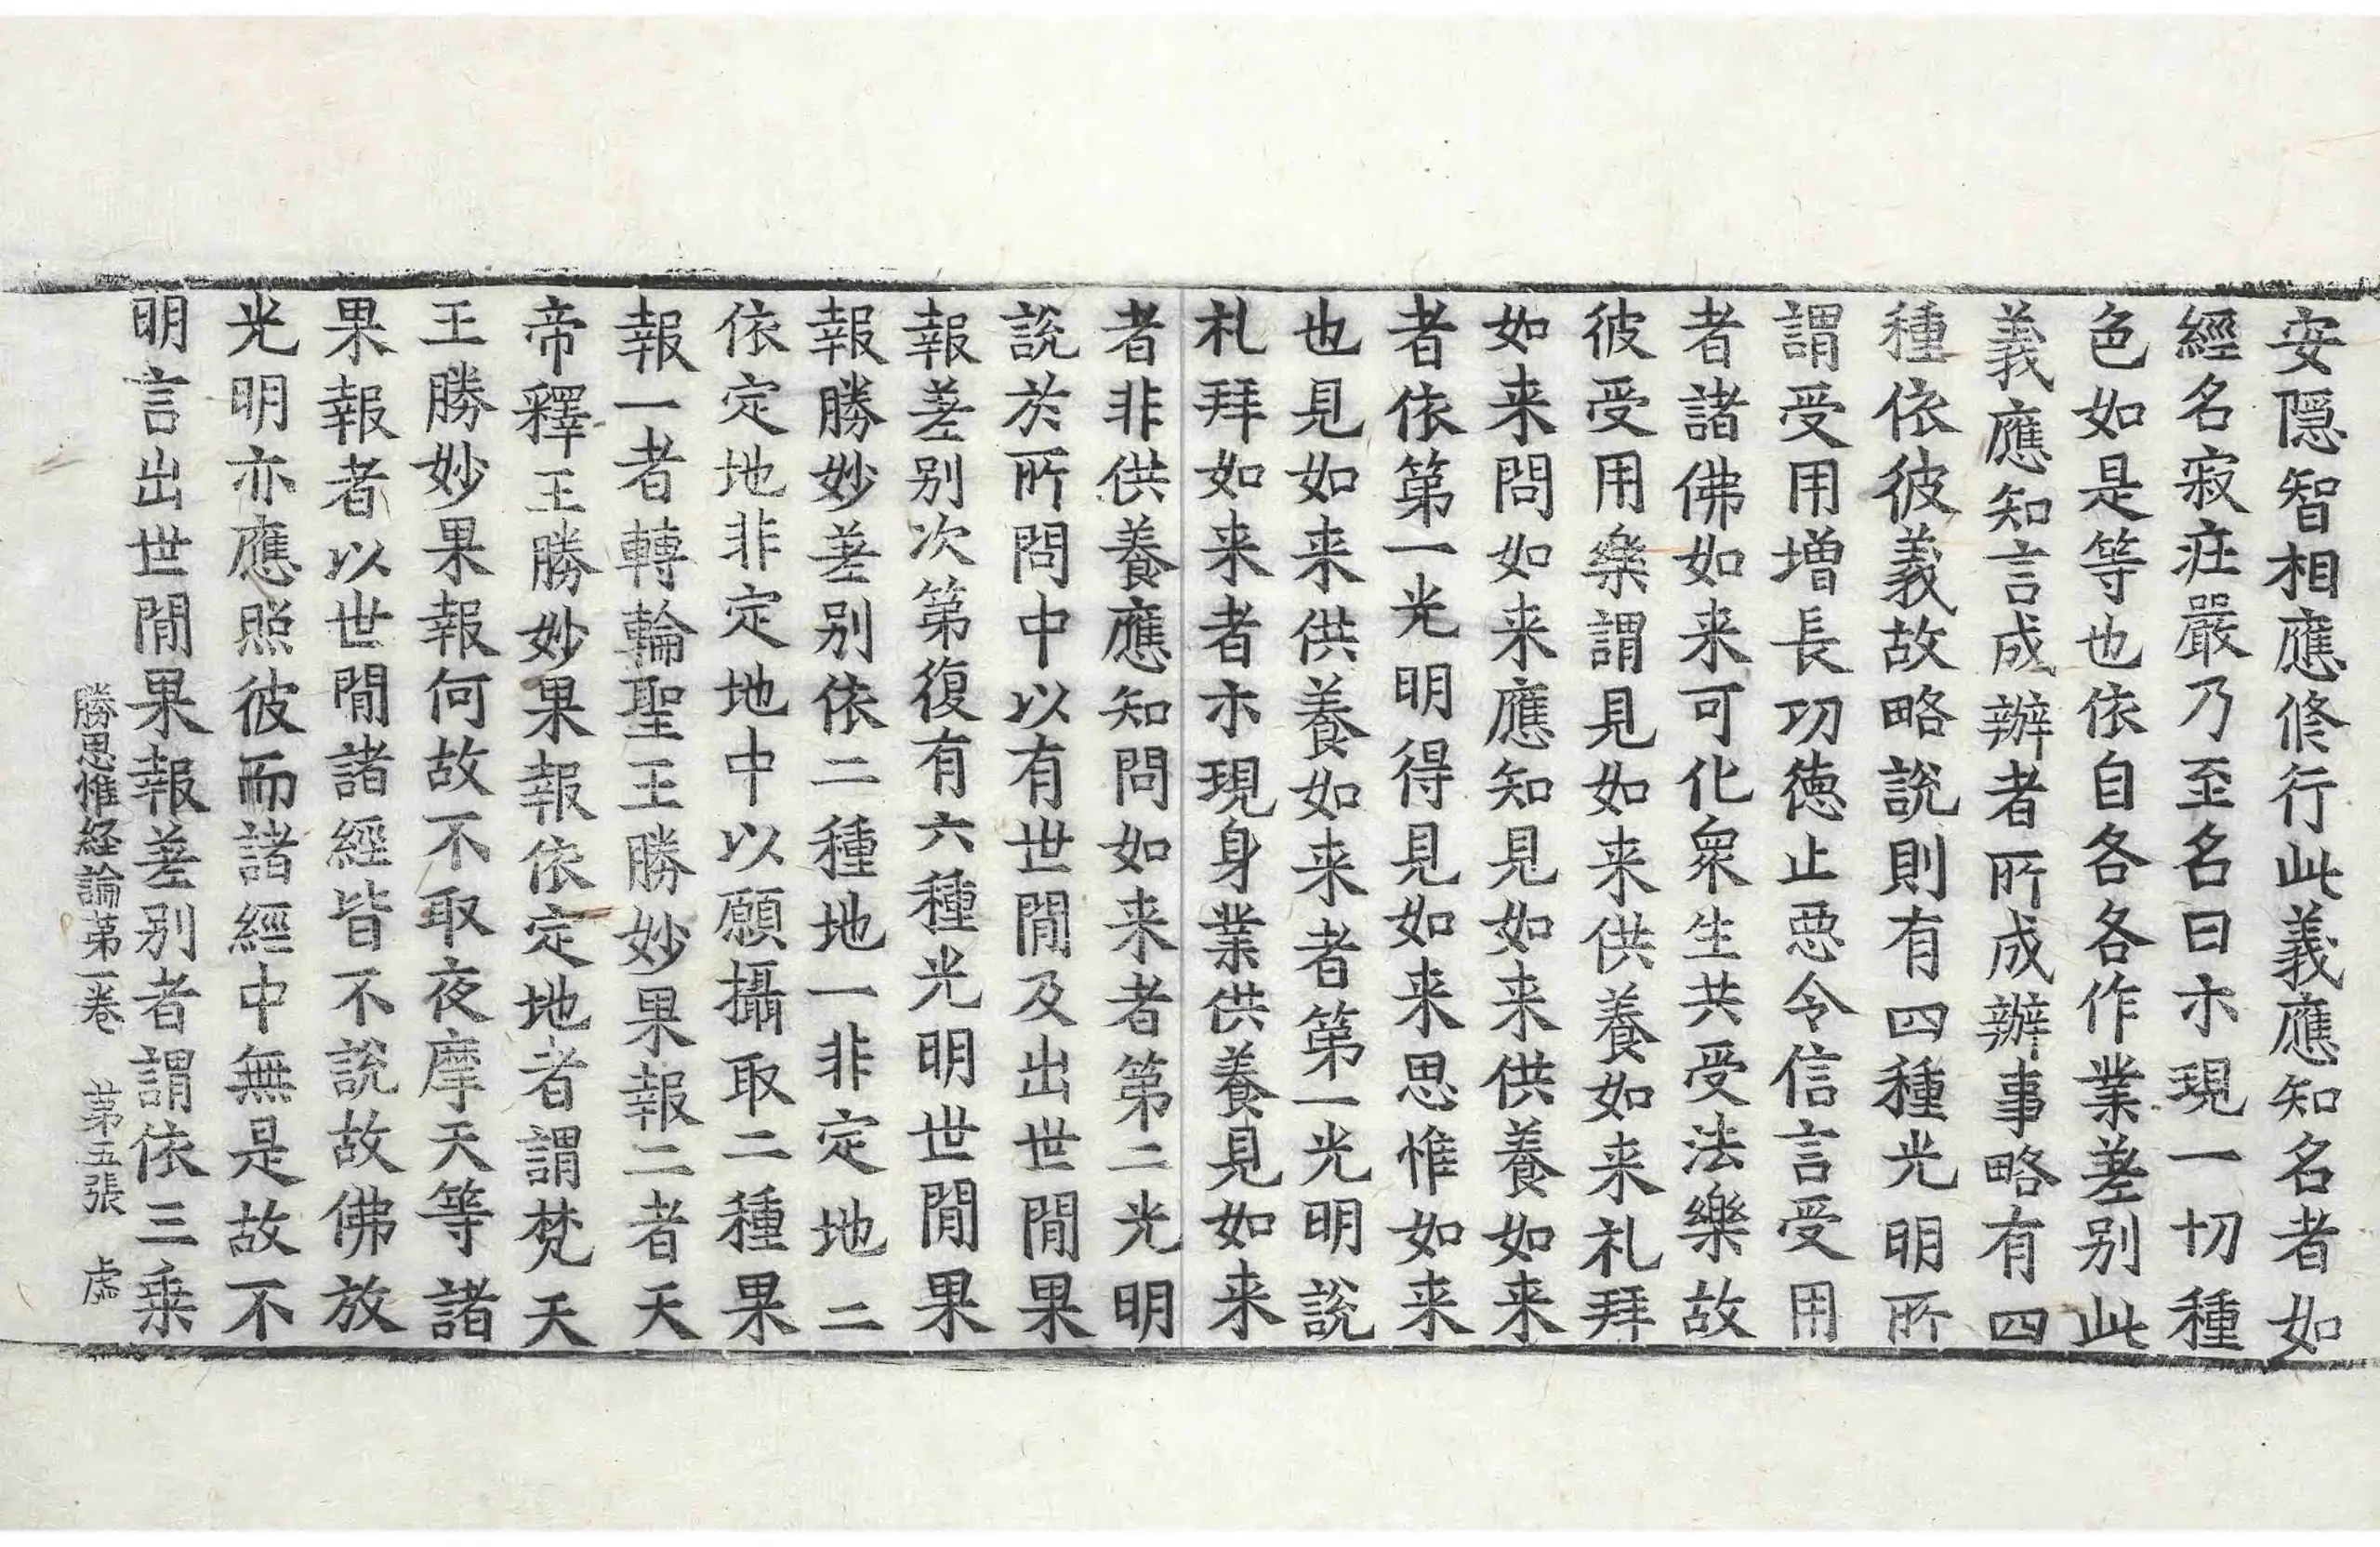 安隱智相應修行此義應知名者如
經名寂疘嚴乃至名曰示現一切種
色如是等也依自各各作業差别此
義應知言成辦者所成辦事略有四
種依彼義故略說則有四種光明所
謂受用增長功徳止惡令信言受用
者諸佛如来可化衆生共受法樂故
彼受用樂謂見如来供養如来礼拜
如来問如来應知見如来供養如来
者依第一光明得見如来思惟如来
也見如来供養如来者第一光明說
札拜如来者示現身業供養見如来
者非供養應知問如来者第二光明
說於所問中以有世間及出世間果
報差别次第復有六種光明世間果
報勝妙差别依二種地一非定地二
依定地非定地中以願攝取二種果
報一者轉輪聖王勝妙果報二者天
帝釋王勝妙果報依定地者謂梵天
王勝妙果報何故不取夜摩天等諸
果報者以世間諸經皆不說故佛放
光明亦應照彼而諸經中無是故不
明言出世間果報差别者謂依三乗
勝思惟經論苐一卷 苐五張 虗